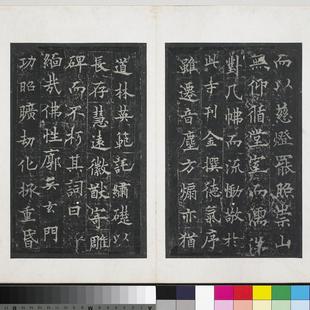 而以慈燈罷昭崇山
無仰循堂室而濡洟
對几而流慟敬於
此刊金撰德氣序
雖遷音塵方煽亦猶
道林英範託繡礎以
長存慧遠徽猷寄雕
碑而不朽其詞曰
緬哉佛性廓矣玄門
功昭曠劫化拯重昏